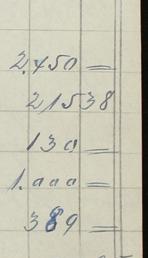 2.450 =
21538
130 =
1.000 =
389 =